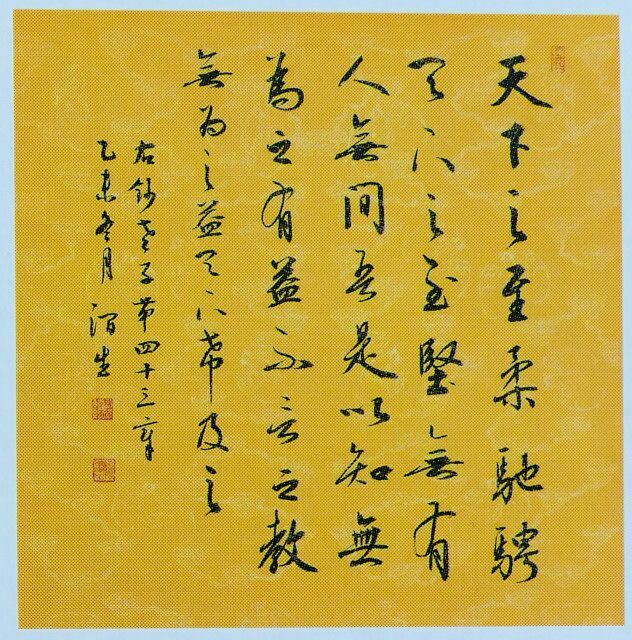 天下之至柔馳騁
天下之至堅無有
入無間吾是以知無
為之有益不言之教
無為之益天下希及之
右鈔老子第四十三章
乙未冬月 生